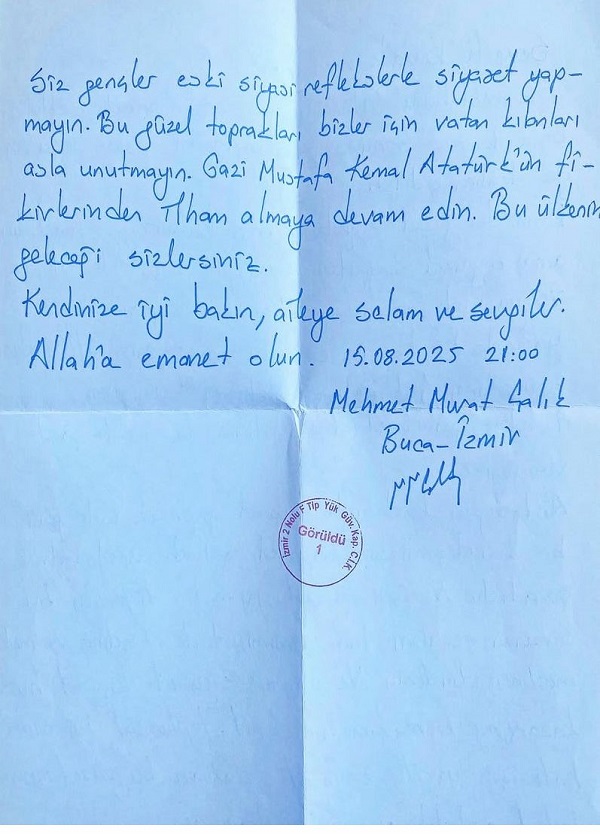 Siz gençler eski siyasi reflekslerle siyaset yap-
mayın. Bu güzel toprakları bizler için vatan kılanları
asla unutmayın. Gazi Mustafa Kemal Atatürk'ün fi-
kirlerinden ilham almaya devam edin. Bu ülkenin
geleceği sizlersiniz.
Kendinize iyi bakın, aileye selam ve sevgiler.
Allah'a emanet olun. 15.08.2025 21:00
Mehmet Murat Çalık
Buca-İzmir
İzmir 2 Nolu F Tip Yük. Güv. Kap. C.İ.K.
Görüldü
1